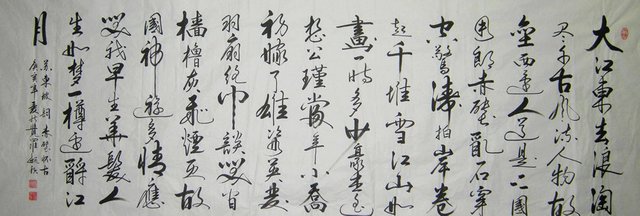 大江東去浪淘
尽千古風流人物故
壘西邊人道是三國
周郎赤壁亂石穿
空驚濤拍岸卷
起千堆雪江山如
畫一時多少豪杰遙
想公瑾當年小喬
初嫁了雄姿英發
羽扇綸巾談笑間
檣櫓灰飛煙滅故
國神游多情應
笑我早生華髮人
生如夢一樽還酹江
月
蘇東坡詞赤壁怀古